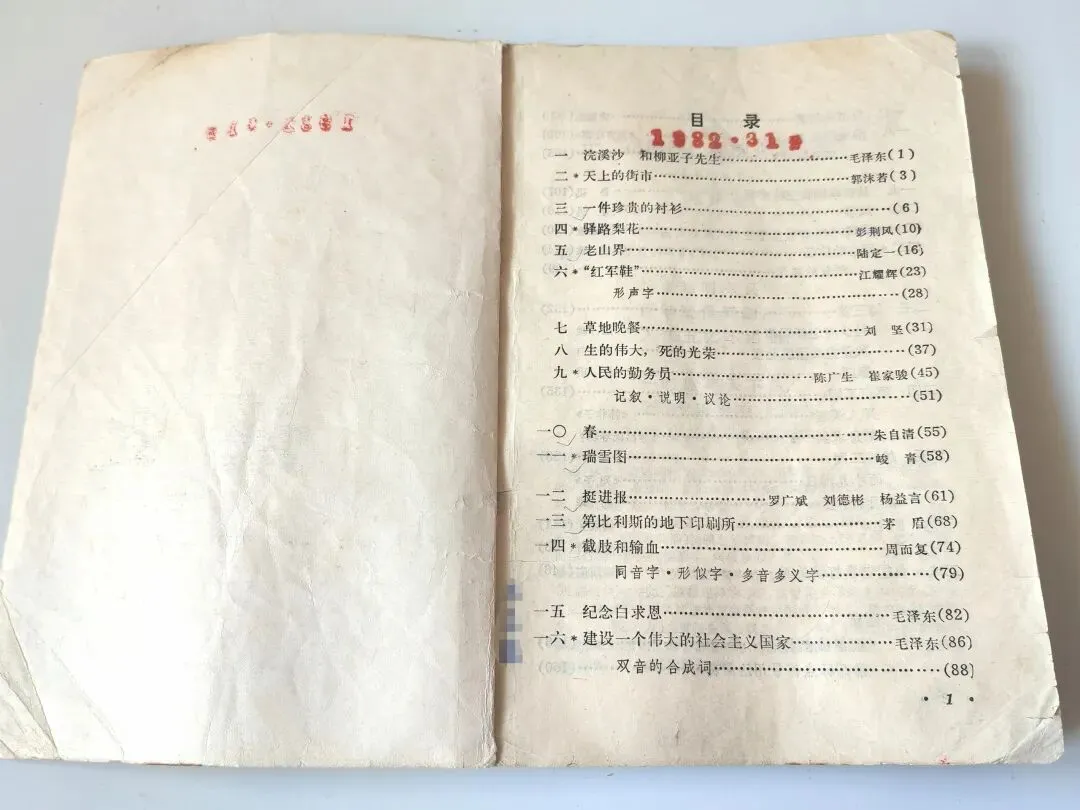 目 录
1982·31
一 浣溪沙 和柳亚子先生……………………毛泽东(1)
二*天上的街市……………………郭沫若(3)
三 一件珍贵的衬衫……………………(6)
四*驿路梨花……………………彭荆风(10)
五 老山界……………………陆定一(16)
六*“红军鞋”……………………江耀辉(23)
形声字……………………(28)
七 草地晚餐……………………刘 坚(31)
八 生的伟大，死的光荣……………………(37)
九*人民的勤务员……………………陈广生 崔家骏(45)
记叙·说明·议论……………………(51)
一〇 春……………………朱自清(55)
一一*瑞雪图……………………峻 青(58)
一二 挺进报……………………罗广斌 刘德彬 杨益言(61)
一三 第比利斯的地下印刷所……………………茅 盾(68)
一四*截肢和输血……………………周而复(74)
同音字·形似字·多音多义字……………………(79)
一五 纪念白求恩……………………毛泽东(82)
一六*建设一个伟大的社会主义国家……………………毛泽东(86)
双音的合成词……………………(88)
· 1 ·